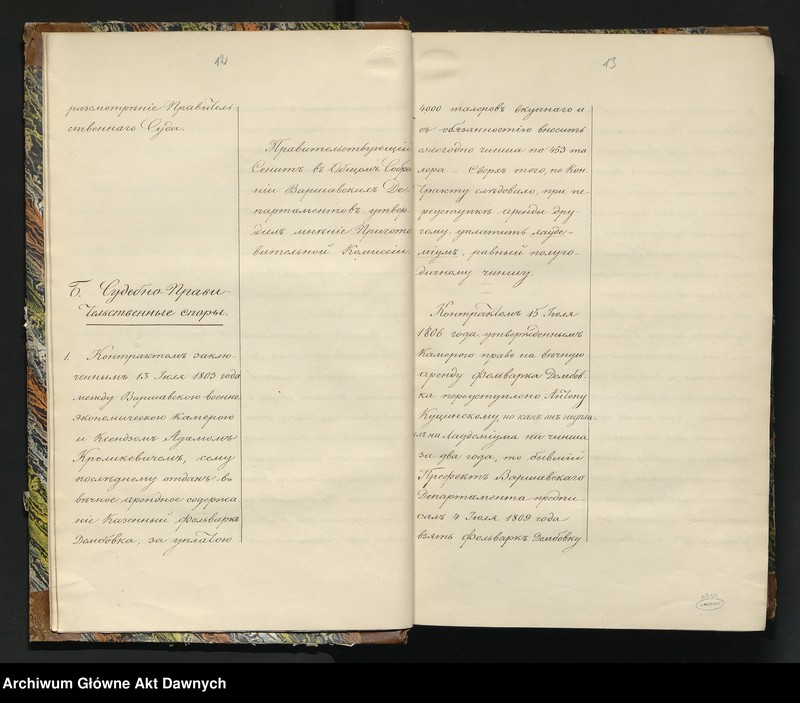 12
разсмотрѣніе Правитель
ственнаго Суда.
Правительствующій
Сенатъ въ Общемъ Собра
ніи Варшавскихъ Де-
партаментовъ утвер
дилъ мнѣніе Пригото
вительной Коммисіи.
Б. Судебно-Прави-
тельственные споры.
1. Контрактомъ заклю-
ченнымъ 13 Іюля 1803 года
между Варшавскою военно
экономическою Камерою
и Ксендзомъ Адамомъ
Кроликевичемъ, сему
послѣднему отданъ въ
вѣчное арендное содержа
ніе казенный фольварк
Дембовка, за уплатою
13
4000 талеровъ вкупнаго и
съ обязанностію вносить
ежегодно чинша по 453 та
лера. Сверхъ того, по кон
тракту слѣдовало, при пе
реуступкѣ аренды дру-
гому, уплатить лауде-
міумъ, равный полуго-
дичному чиншу.
Контрактомъ 15 Іюля
1806 года, утвержденнымъ
Камерою право на вѣчную
аренду фольварка Дембов-
ка переуступлено Антону
Куцинскому, но какъ онъ неупла-
илъ ни Лаудеміума ни чинша
за два года, то бывшій
Префектъ Варшавскаго
Департамента предпи-
салъ 4 Іюля 1809 года
взять фольваркъ Дембовку
Archiwum Główne Akt Dawnych